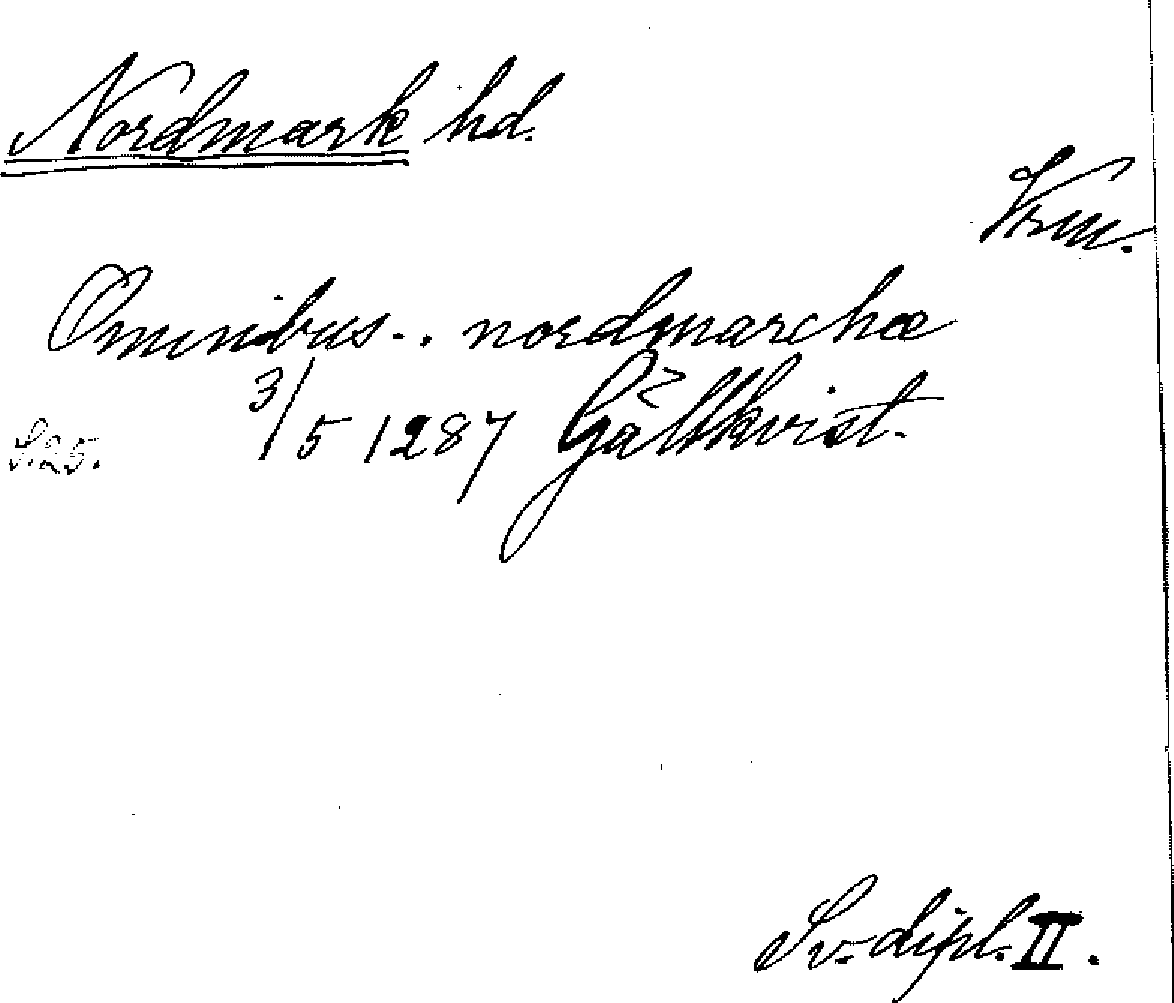 Nordmark hd.
Vrm.
Omnibus.. nordmarchæ
3/5 1287 Gälkvist.
S. 25.
Sv. dipl. II.